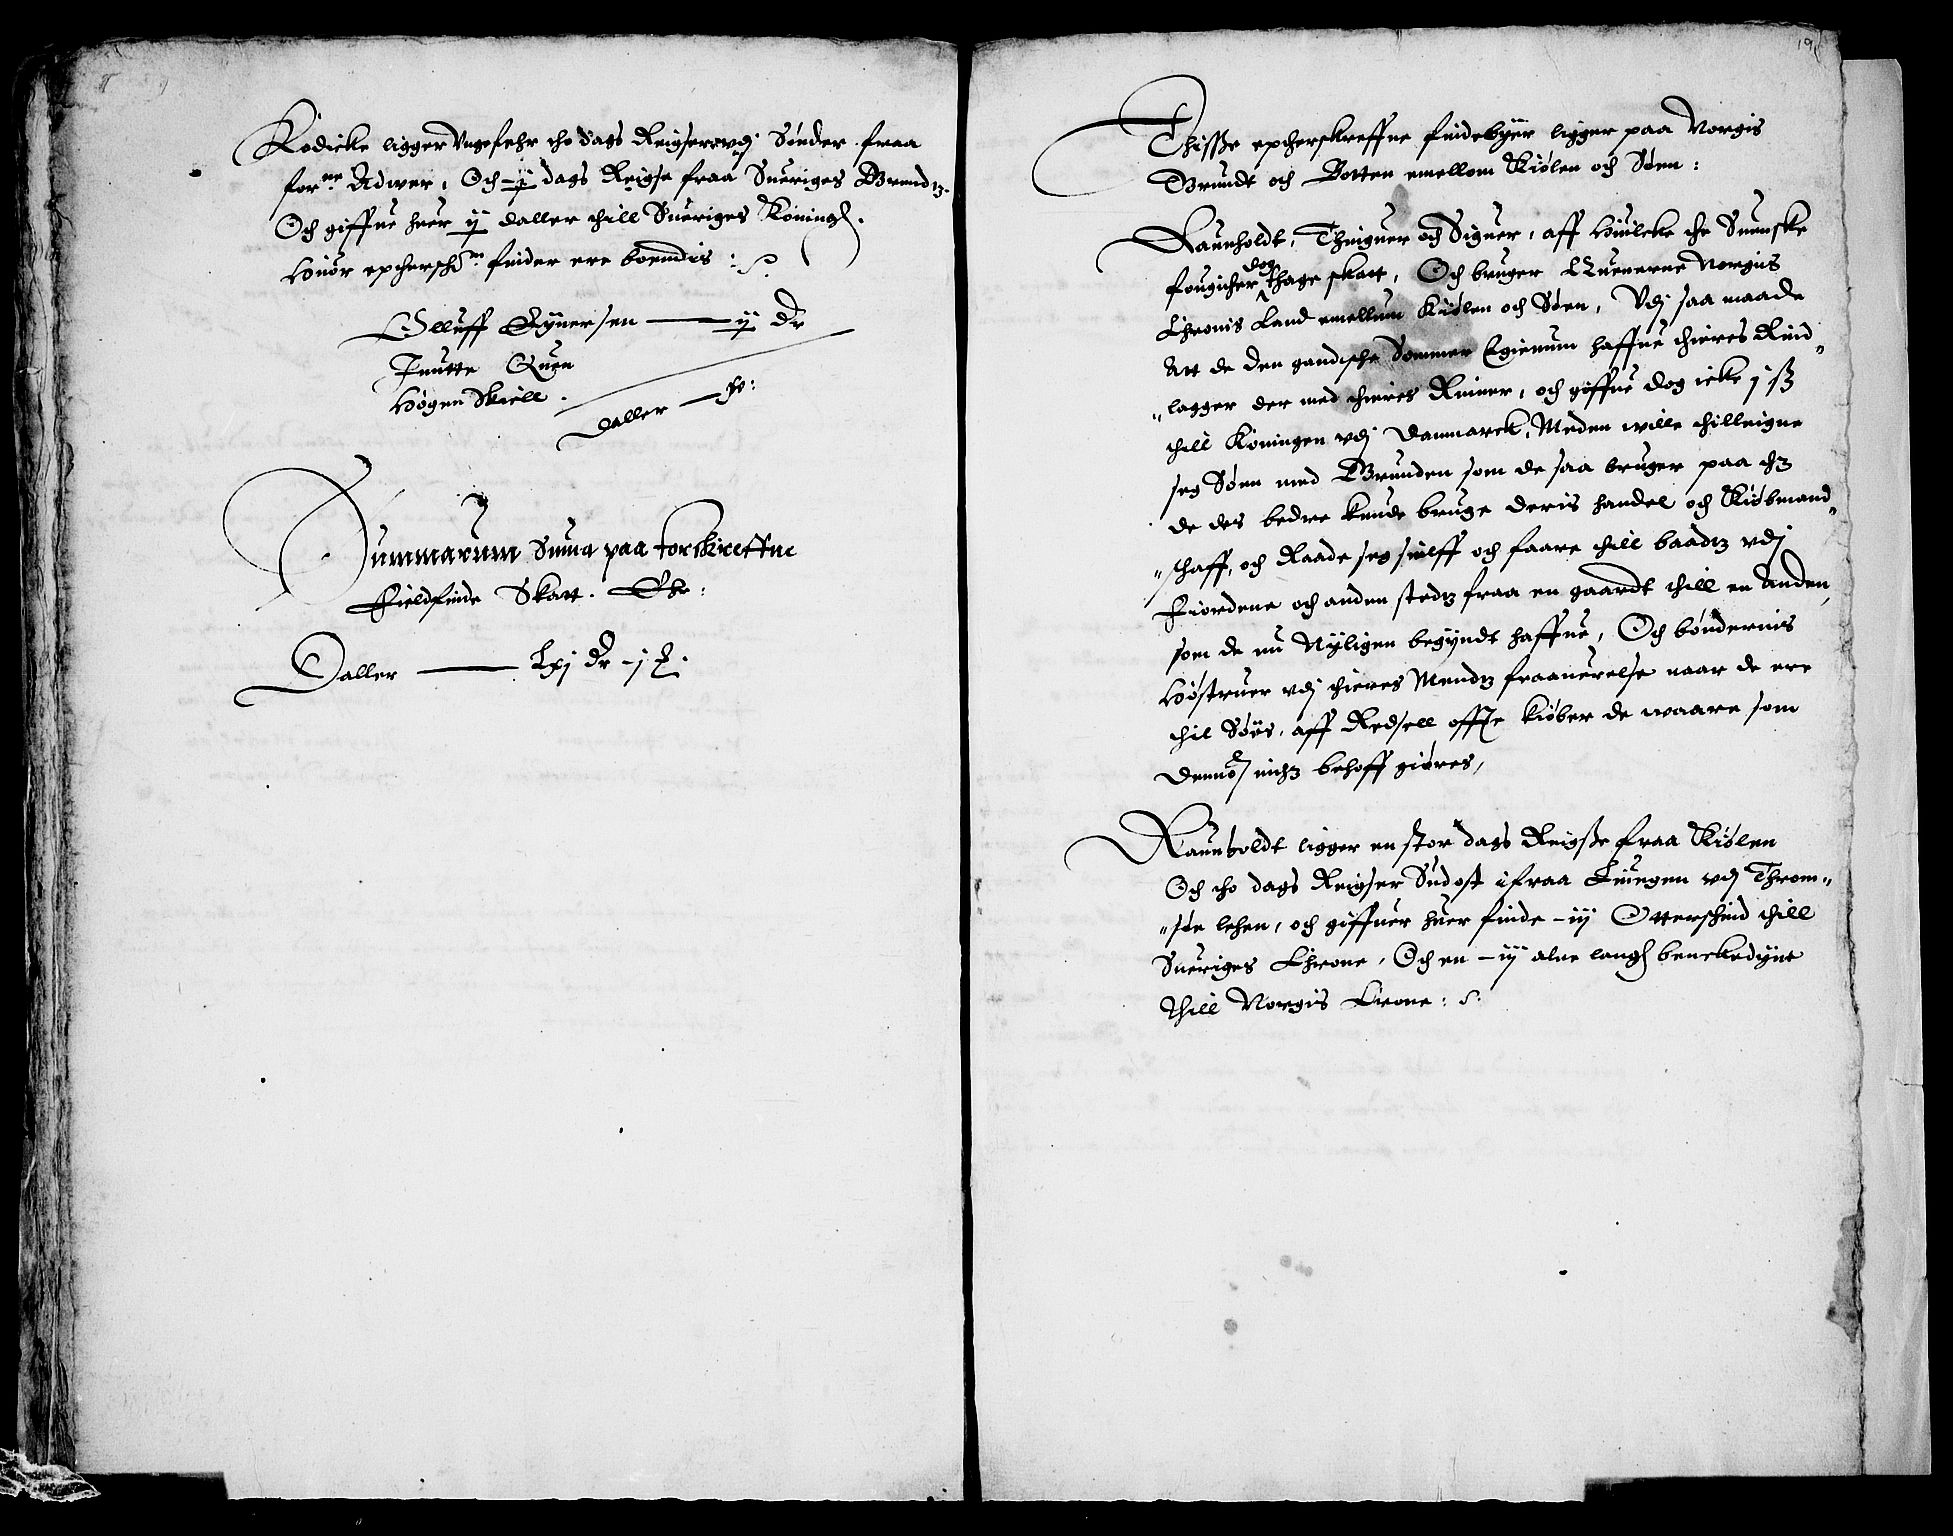 Kodicke ligger Vngefehr tho dags Reigser vdj Sönder fraa
for:ne Adwer, Och ij dags Reigse fraa Sueriges Grendtz.
Och giffue huer ij daller thill Sueriges Koningh.
Huor epthersch:ne finder ere boendis :
Olluff Eynersen — ij dr
Huer Quen
Högen Skiell.
daller —
Summarum Suma paa forskreffne
Fieldfinde Skatt. Ehr:
Daller — Lxj dr -j
19
Thisße eptherskreffne findebyer ligger paa Norgis
Grundt och Botten emellom Kiölen och Söen:
Rauneholdt, Thinguer och Siguer, aff Huilcke the Suenske
fougither dog thage skatt, Och bruger Quenerne Norgis
Chronis Land emellum Kiölen och Söen, Vdj saa maade
Att de den gandtsche Sommer Egienum haffue thieres Rind„
„lagger der med thieres Reiner, och giffue dog icke j ß
thill Koningen vdj Danmarck, Meden wille thilleigne
seg Söen med Grunden som de saa bruger paa thz
de des bedre kunde bruge deris handel och Kiöbmand„
„schaff, och Raade seg sielff och faare thill baadz vdj
Fiordene och anden stedtz fraa en gaardt thill en Anden,
som de nu Nyligen begyndt haffue, Och böndernis
Höstruer vdj thieres Mendtz fraauerelse naar de ere
thil Söes, aff Redsell offte kiöber de waare som
dennom inthz behoff giöres,
Raunholdt ligger en stor dags Reigße fraa Kiölen
Och tho dags Reigser Sudost ifraa Liungen vdj Throm„
„söe lehen, och giffuer huer finde - iij Otterschind thill
Sueriges Chrone, Och en - iij alne langh benckedynt
thill Norgis Crone :